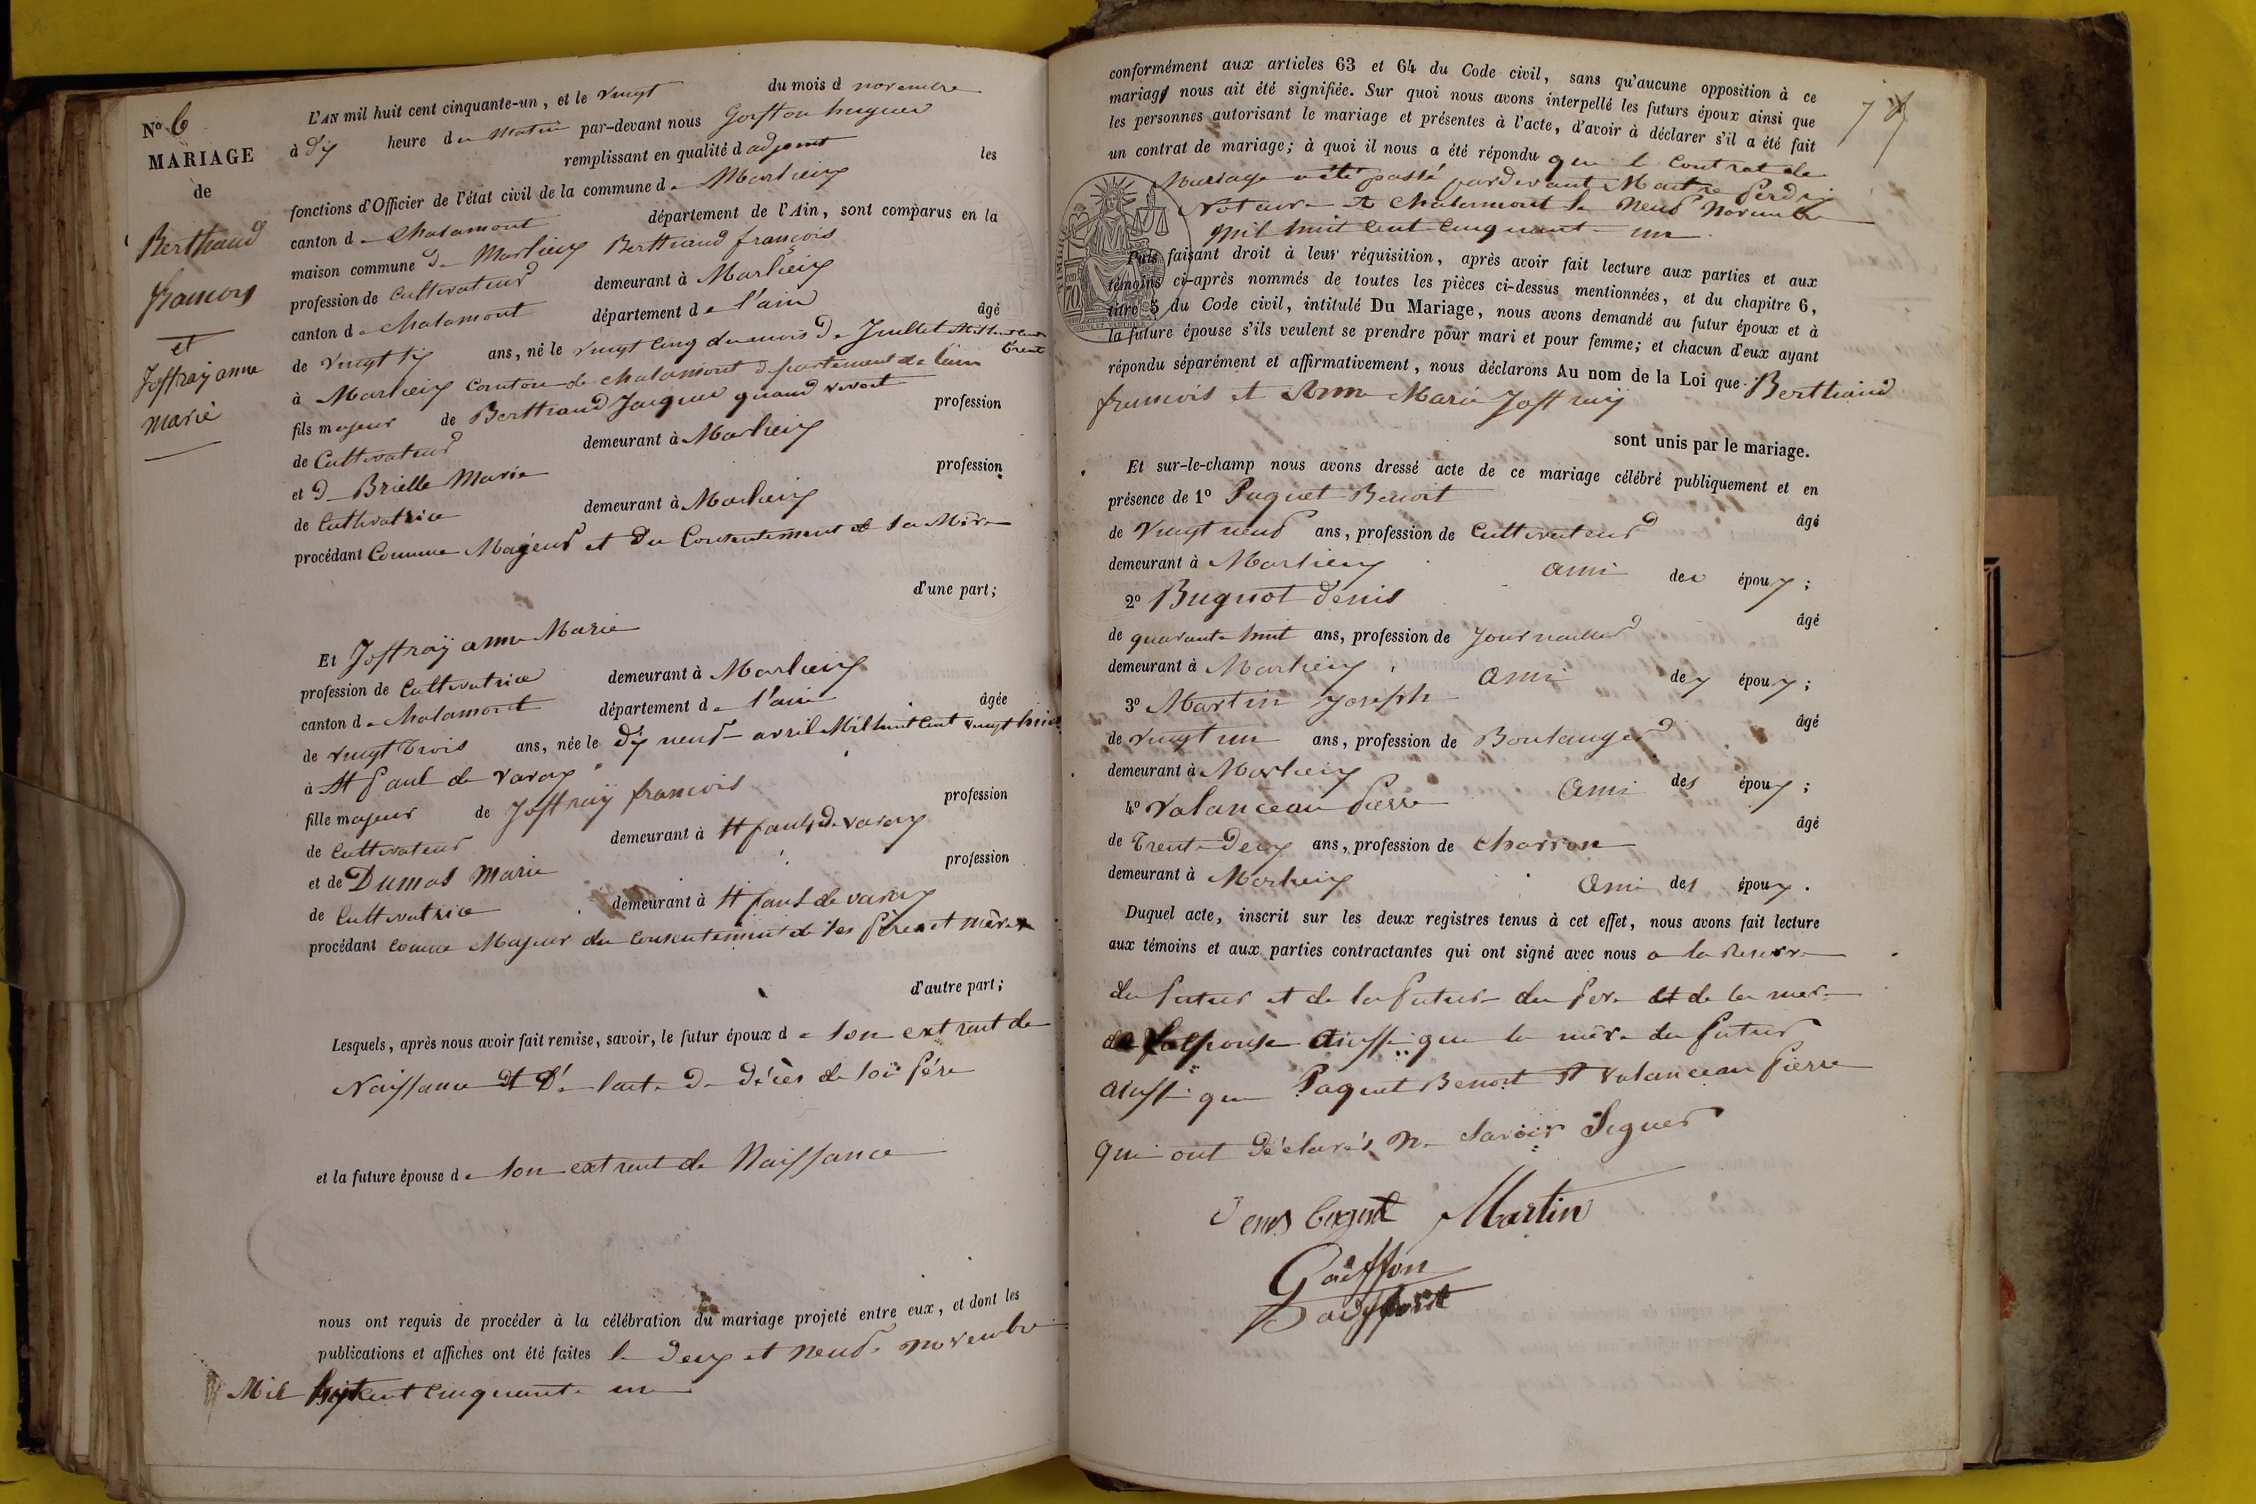 Nº 6
MARIAGE
de
Berthaud
francois
et
Joffray anne
marie
L'AN mil huit cent cinquante-un, et le vingt du mois d novembre
à dix heure du matin par-devant nous
remplissant en qualité d'adjoint les
fonctions d'Officier de l'état civil de la commune de Marlieux
canton de chalamont département de l'Ain, sont comparus en la
maison commune de Marlieux Berthaud françois
profession de Cultivateur demeurant à Marlieux
canton de chalamont département de l'ain âgé
de vingt six ans, né le vingt cinq du mois de Juillet
à Marlieux Canton de chalamont département de l'ain
fils majeur de Berthaud Jacques quand vivait profession
de Cultivateur demeurant à Marlieux
et de Brielle Marie profession
de Cultivatrice demeurant à Marlieux
procédant Comme Majeur et du Consentement de sa Mère
d'une part;
Et Joffraÿ anne Marie
profession de Cultivatrice demeurant à Marlieux
canton de chalamont département de l'ain âgée
de vingt trois ans, née le dix neuf avril Mil huit Cent vingt huit
à St paul de varax
fille majeur de Joffraÿ francois profession
de Cultivateur demeurant à St paul de varax
et de Dumas Marie profession
de Cultivatrice demeurant à St paul de varax
procédant comme Majeur du consentement de ses père et mère
d'autre part;
Lesquels, après nous avoir fait remise, savoir, le futur époux de son extrait de
Naissance et de l'acte de décès de son père
et la future épouse de son extrait de Naissance
nous ont requis de procéder à la célébration du mariage projeté entre eux, et dont les
publications et affiches ont été faites le deux et neuf novembre
Mil huit cent cinquante un
conformément aux articles 63 et 64 du Code civil, sans qu'aucune opposition à ce
mariage nous ait été signifiée. Sur quoi nous avons interpellé les futurs époux ainsi que
les personnes autorisant le mariage et présentes à l'acte, d'avoir à déclarer s'il a été fait
un contrat de mariage; à quoi il nous a été répondu que le Contrat de
Mariage a été passé pardevant Maitre
Notaire à Chalamont le neuf Novembre
Mil huit Cent Cinquante un
Puis faisant droit à leur réquisition, après avoir fait lecture aux parties et aux
témoins ci-après nommés de toutes les pièces ci-dessus mentionnées, et du chapitre 6,
titre 5 du Code civil, intitulé Du Mariage, nous avons demandé au futur époux et à
la future épouse s'ils veulent se prendre pour mari et pour femme; et chacun d'eux ayant
répondu séparément et affirmativement, nous déclarons Au nom de la Loi que Berthaud
francois et Anne Marie Joffraÿ
sont unis par le mariage.
Et sur-le-champ nous avons dressé acte de ce mariage célébré publiquement et en
présence de 1º Paquet Benoit âgé
de vingt neuf ans, profession de Cultivateur
demeurant à Marlieux ami des époux;
2º Bugnot denis âgé
de quarante huit ans, profession de Journailler
demeurant à Marlieux ami des époux;
3º Martin Joseph âgé
de vingt un ans, profession de Boulanger
demeurant à Marlieux ami des époux;
4º Valanceau pierre âgé
de Trente deux ans, profession de charron
demeurant à Marlieux ami des époux.
Duquel acte, inscrit sur les deux registres tenus à cet effet, nous avons fait lecture
aux témoins et aux parties contractantes qui ont signé avec nous a la Reserve
du futur et de la future du père et de la mère
de l'epouse ainssi que la mère du futur
ainssi que Paquet Benoit et Valanceau pierre
qui ont déclarés ne savoir signer
Martin